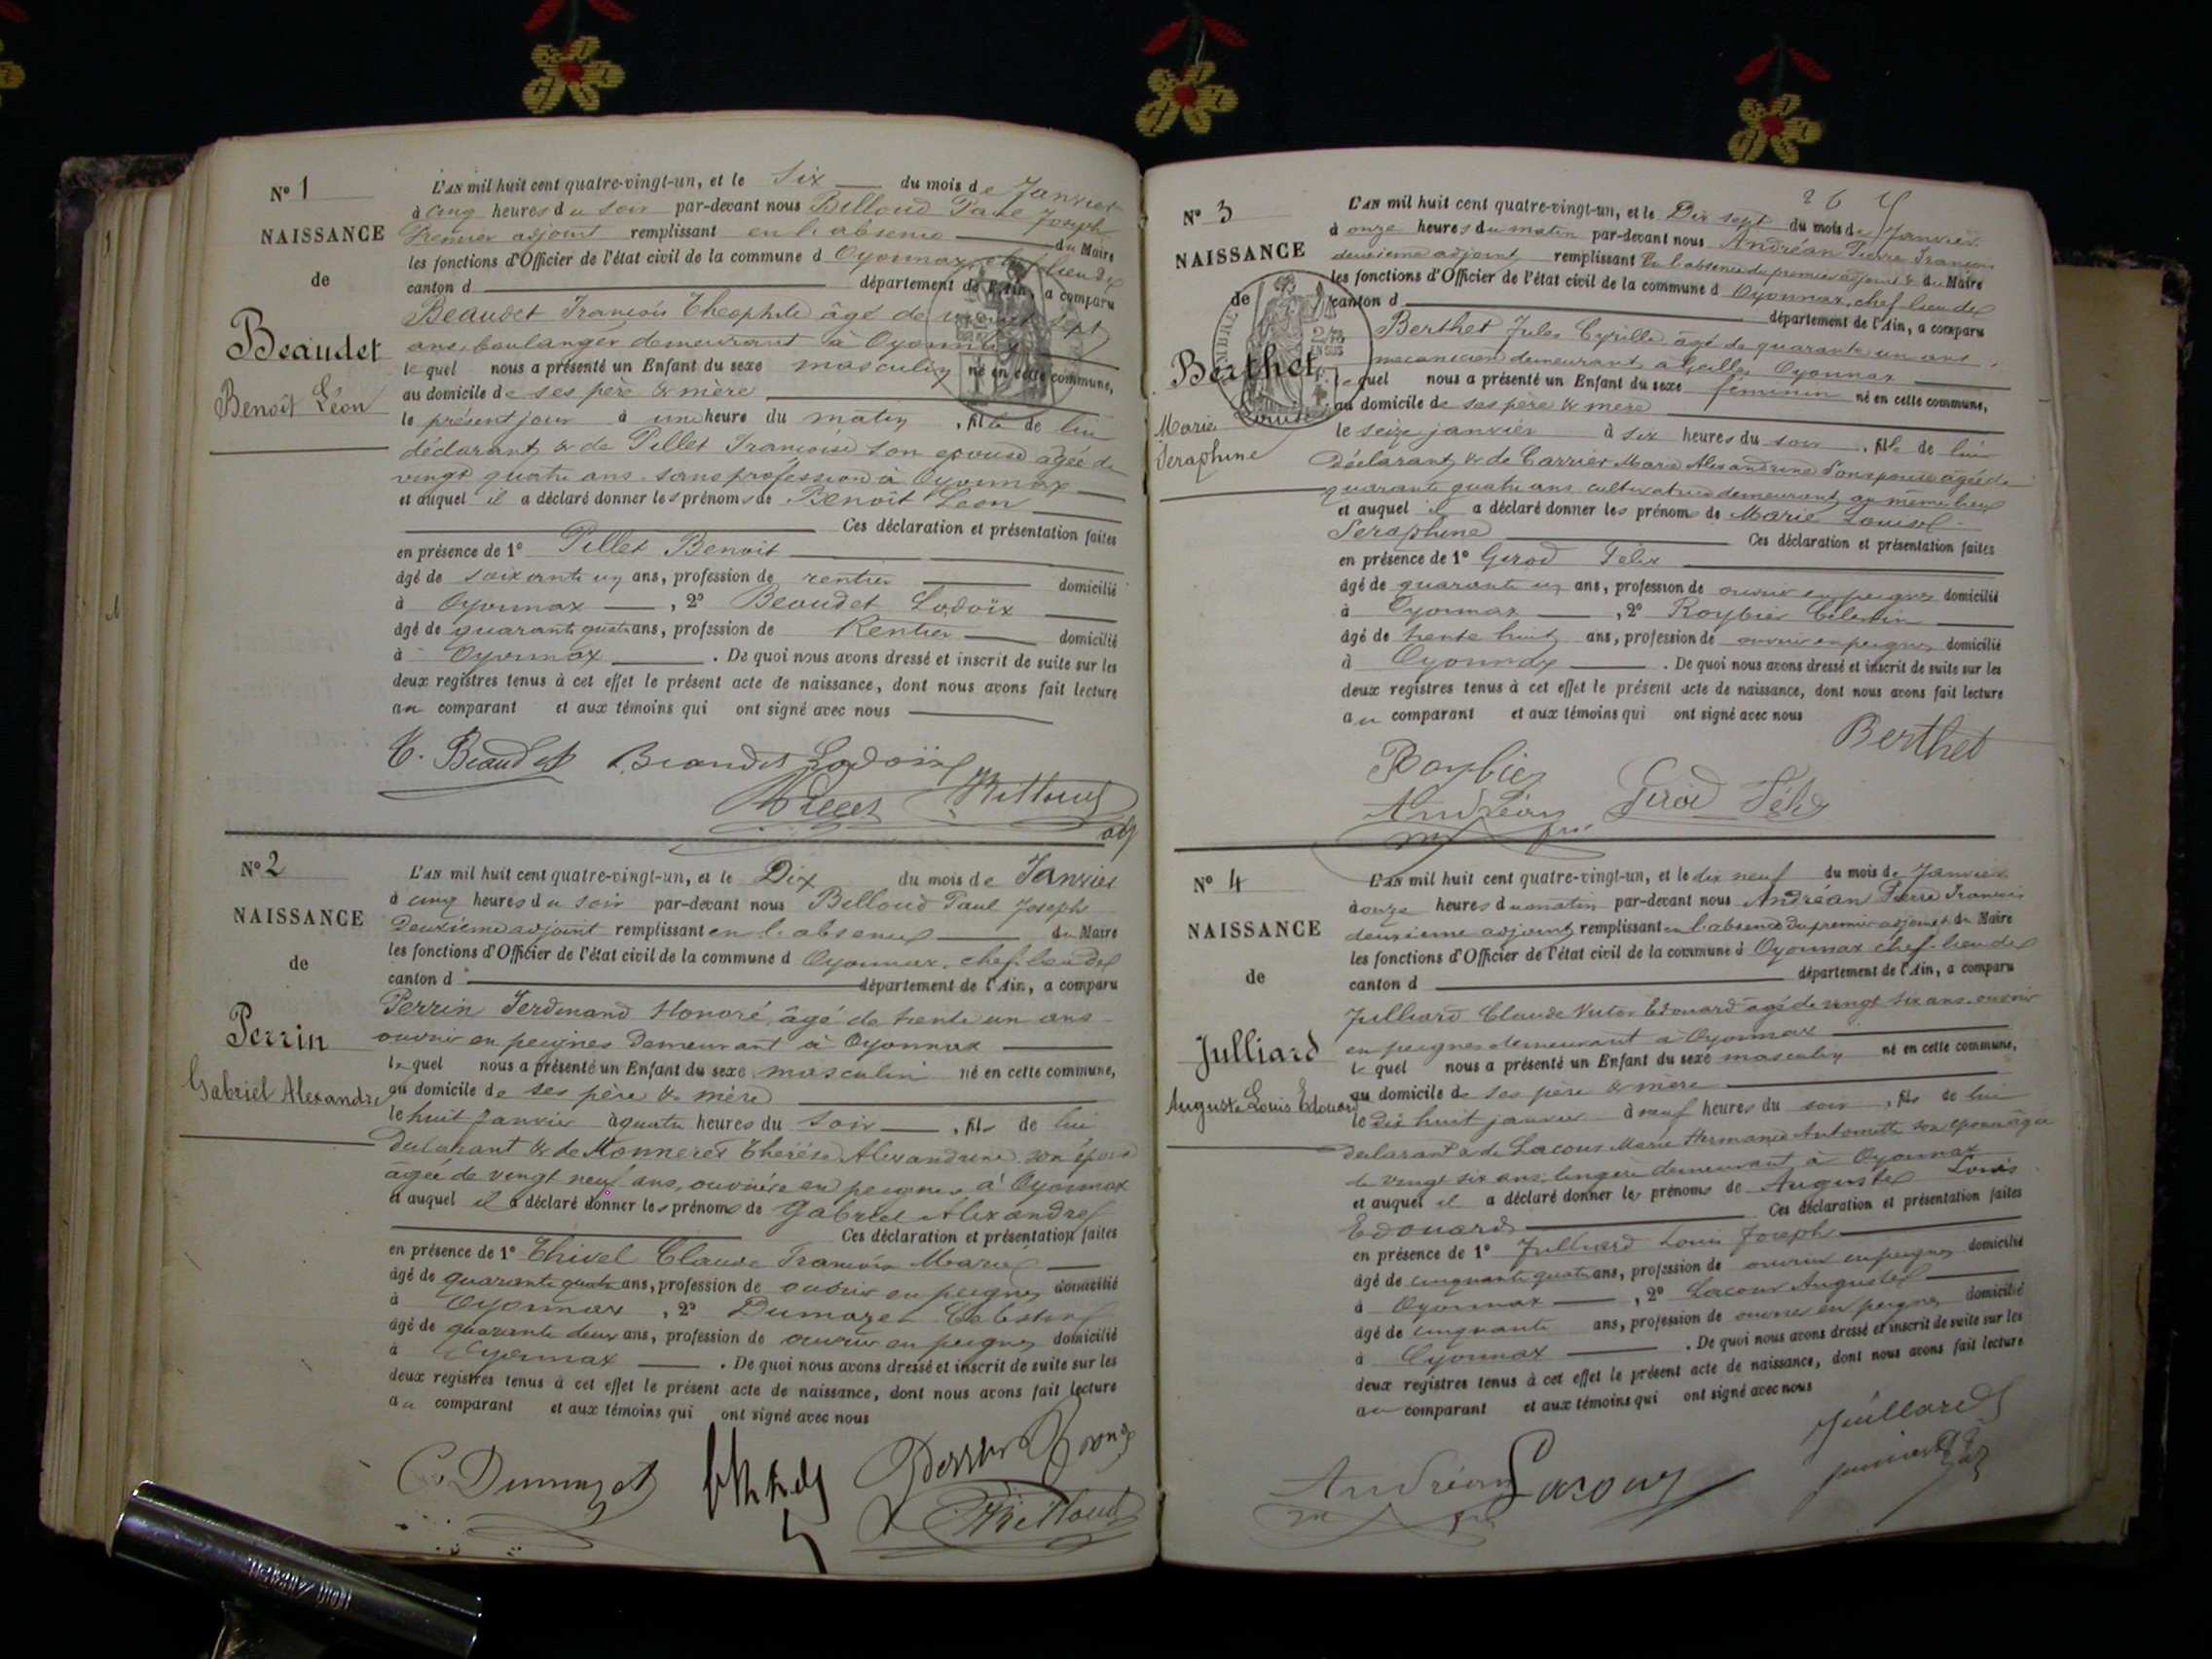 N° 1
NAISSANCE
de
Beaudet
Benoît Léon
L'AN mil huit cent quatre-vingt-un, et le Six du mois de Janvier
à cinq heures du soir par-devant nous Billoud Paul Joseph
Premier adjoint remplissant en l'absence du Maire
les fonctions d'Officier de l'état civil de la commune d Oyonnax, chef lieu de
canton d département de l'Ain, a comparu
Beaudet François Theophile âgé de sept
ans, boulanger demeurant à Oyonnax
lequel nous a présenté un Enfant du sexe masculin né en cette commune,
au domicile de ses père & mère
le présent jour à une heure du matin, fils de lui
déclarant & de Pillet Françoise son epouse agée de
vingt quatre ans sans profession à Oyonnax
et auquel il a déclaré donner les prénoms de Benoît Léon
Ces déclaration et présentation faites
en présence de 1° Pillet Benoit
âgé de soixante un ans, profession de rentier domicilié
à Oyonnax, 2° Beaudet Lodoïx
âgé de quarante quatre ans, profession de Rentier domicilié
à Oyonnax. De quoi nous avons dressé et inscrit de suite sur les
deux registres tenus à cet effet le présent acte de naissance, dont nous avons fait lecture
au comparant et aux témoins qui ont signé avec nous
T. Beaudet Beaudet Lodoïx
Billoud
N° 2
NAISSANCE
de
Perrin
Gabriel Alexandre
L'AN mil huit cent quatre-vingt-un, et le Dix du mois de Janvier
à cinq heures du soir par-devant nous Billoud Paul Joseph
Deuxième adjoint remplissant en l'absence du Maire
les fonctions d'Officier de l'état civil de la commune d Oyonnax, chef lieu de
canton d département de l'Ain, a comparu
Perrin Ferdinand Honoré, âgé de trente un ans
ouvrier en peignes demeurant à Oyonnax
lequel nous a présenté un Enfant du sexe masculin né en cette commune,
au domicile de ses père & mère
le huit Janvier à quatre heures du Soir, fils de lui
déclarant & de Monneret Thérèse Alexandrine son épouse
âgée de vingt neuf ans, ouvrière en peignes à Oyonnax
et auquel il a déclaré donner les prénoms de Gabriel Alexandre
Ces déclaration et présentation faites
en présence de 1° Thivel Claude François Marie
âgé de quarante quatre ans, profession de ouvrier en peignes domicilié
à Oyonnax, 2° Dumazet Célestin
âgé de quarante deux ans, profession de ouvrier en peignes domicilié
à Oyonnax. De quoi nous avons dressé et inscrit de suite sur les
deux registres tenus à cet effet le présent acte de naissance, dont nous avons fait lecture
au comparant et aux témoins qui ont signé avec nous
C. Dumazet Perrin
Billoud
26
N° 3
NAISSANCE
de
Berthet
Marie Louise
Seraphine
L'AN mil huit cent quatre-vingt-un, et le Dix sept du mois de Janvier
à onze heures du matin par-devant nous Andréan Pierre François
deuxième adjoint remplissant en l'absence du premier adjoint & du Maire
les fonctions d'Officier de l'état civil de la commune d Oyonnax, chef lieu de
canton d département de l'Ain, a comparu
Berthet Jules Cyrille âgé de quarante un ans
mecanicien demeurant à Geilles Oyonnax
lequel nous a présenté un Enfant du sexe féminin né en cette commune,
au domicile de ses père & mère
le seize janvier à six heures du soir, fille de lui
Déclarant & de Carrier Marie Alexandrine son epouse agée de
quarante quatre ans cultivatrice demeurant au même lieu
et auquel il a déclaré donner les prénoms de Marie Louise
Seraphine Ces déclaration et présentation faites
en présence de 1° Girod Félix
âgé de quarante un ans, profession de ouvrier en peignes domicilié
à Oyonnax, 2° Roybier Célestin
âgé de trente huit ans, profession de ouvrier en peignes domicilié
à Oyonnax. De quoi nous avons dressé et inscrit de suite sur les
deux registres tenus à cet effet le présent acte de naissance, dont nous avons fait lecture
au comparant et aux témoins qui ont signé avec nous
Berthet
Roybier
Andréan Girod Félix
N° 4
NAISSANCE
de
Julliard
Auguste Louis Edouard
L'AN mil huit cent quatre-vingt-un, et le dix neuf du mois de Janvier
à onze heures du matin par-devant nous Andréan Pierre François
deuxième adjoint remplissant en l'absence du premier adjoint & du Maire
les fonctions d'Officier de l'état civil de la commune d Oyonnax chef lieu de
canton d département de l'Ain, a comparu
Julliard Claude Victor Edouard âgé de vingt six ans, ouvrier
en peignes demeurant à Oyonnax
lequel nous a présenté un Enfant du sexe masculin né en cette commune,
au domicile de ses père & mère
le dix huit janvier à neuf heures du soir, fils de lui
declarant & de Lacour Marie Hermance Antoinette son epouse âgée
de vingt six ans, lingere demeurant à Oyonnax
et auquel il a déclaré donner les prénoms de Auguste Louis
Edouard Ces déclaration et présentation faites
en présence de 1° Julliard Louis Joseph
âgé de cinquante quatre ans, profession de ouvrier en peignes domicilié
à Oyonnax, 2° Lacour Auguste
âgé de cinquante ans, profession de ouvrier en peignes domicilié
à Oyonnax. De quoi nous avons dressé et inscrit de suite sur les
deux registres tenus à cet effet le présent acte de naissance, dont nous avons fait lecture
au comparant et aux témoins qui ont signé avec nous
Juillard
Andréan Lacour